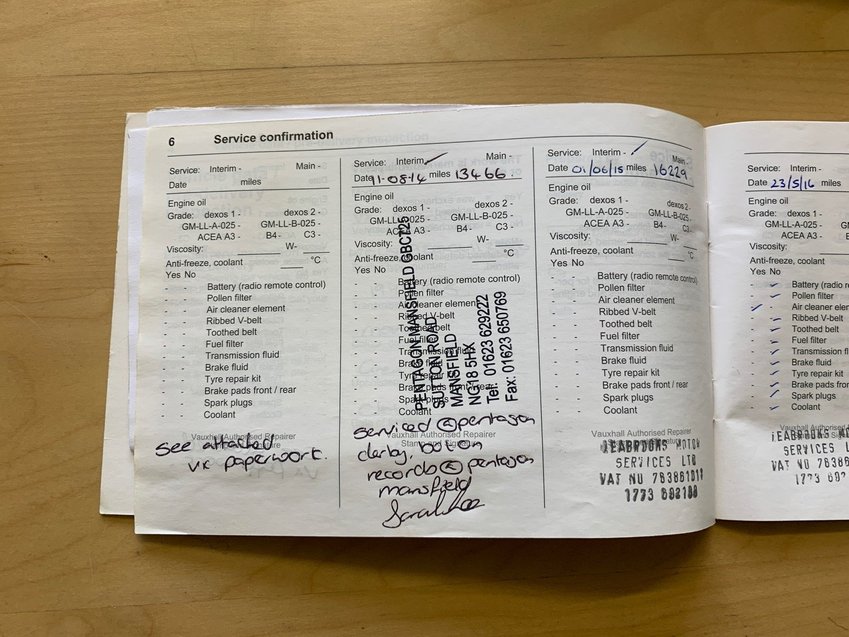 6 Service confirmation
Service: Interim - Main -
Date miles
Engine oil
Grade: dexos 1 - dexos 2 -
GM-LL-A-025 - GM-LL-B-025 -
ACEA A3 - B4- C3 -
Viscosity: W-
Anti-freeze, coolant °C
Yes No
- - Battery (radio remote control)
- - Pollen filter
- - Air cleaner element
- - Ribbed V-belt
- - Toothed belt
- - Fuel filter
- - Transmission fluid
- - Brake fluid
- - Tyre repair kit
- - Brake pads front / rear
- - Spark plugs
- - Coolant
Vauxhall Authorised Repairer
see attached
vx paperwork.
Service: Interim ✓ Main -
Date 11-08-14 miles 13466
Engine oil
Grade: dexos 1 - dexos 2 -
GM-LL-A-025 - GM-LL-B-025 -
ACEA A3 - B4- C3 -
Viscosity: W-
Anti-freeze, coolant °C
Yes No
- - Battery (radio remote control)
- - Pollen filter
- - Air cleaner element
- - Ribbed V-belt
- - Toothed belt
- - Fuel filter
- - Transmission fluid
- - Brake fluid
- - Tyre repair kit
- - Brake pads front / rear
- - Spark plugs
- - Coolant
PENTAGON MANSFIELD GBC725
SUTTON ROAD
MANSFIELD
NG18 5HX
Tel: 01623 629222
Fax: 01623 650769
Vauxhall Authorised Repairer
serviced @ pentagon
derby, but on
records @ pentagon
mansfield
Service: Interim - ✓ Main -
Date 01/06/15 miles 16229
Engine oil
Grade: dexos 1 - dexos 2 -
GM-LL-A-025 - GM-LL-B-025 -
ACEA A3 - B4- C3 -
Viscosity: W-
Anti-freeze, coolant °C
Yes No
- - Battery (radio remote control)
- - Pollen filter
- - Air cleaner element
- - Ribbed V-belt
- - Toothed belt
- - Fuel filter
- - Transmission fluid
- - Brake fluid
- - Tyre repair kit
- - Brake pads front / rear
- - Spark plugs
- - Coolant
Vauxhall Authorised Repairer
LEABROOKS MOTOR
SERVICES LTD
VAT NO
1773
Service: Interim -
Date 23/5/16 miles
Engine oil
Grade: dexos 1 -
GM-LL-A-025 -
ACEA A3 -
Viscosity:
Anti-freeze, coolant
Yes No
- ✓ Battery (radio remote
- ✓ Pollen filter
✓ - Air cleaner
- ✓ Ribbed V-belt
- ✓ Toothed belt
- ✓ Fuel filter
- ✓ Transmission fluid
- ✓ Brake fluid
- ✓ Tyre repair kit
- ✓ Brake pads front
- ✓ Spark plugs
- ✓ Coolant
Vauxhall Authorised
LEABROOKS
SERVICES
VAT NO
1773